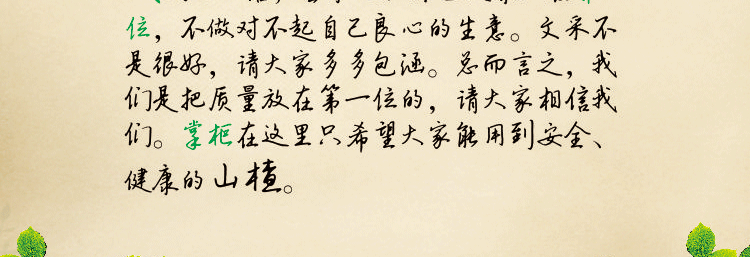 位，不做对不起自己良心的生意。文采不
是很好，请大家多多包涵。总而言之，我
们是把质量放在第一位的，请大家相信我
们。掌柜在这里只希望大家能用到安全、
健康的山楂。